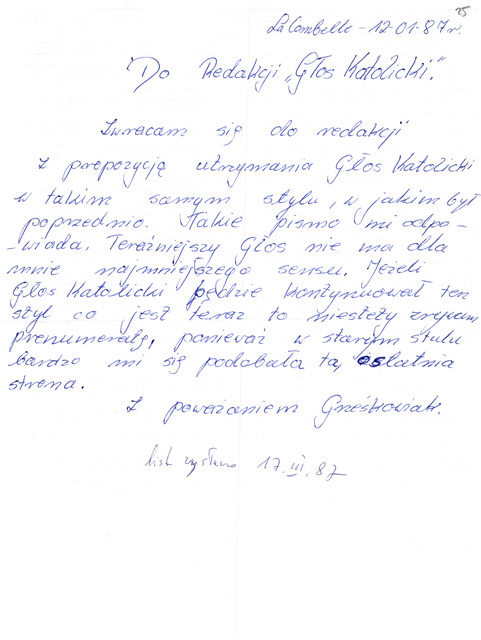 25
La Combelle - 12-01-87r.
Do Redakcji „Głos Katolicki".
Zwracam się do redakcji
z propozycją utrzymania Głos Katolicki
w takim samym stylu, w jakim był
poprzednio. Takie pismo mi odpo-
-wiada. Teraźniejszy Głos nie ma dla
mnie najmniejszego sensu. Jeżeli
Głos Katolicki będzie kontynuował ten
styl co jest teraz to niestety
prenumeratę, ponieważ w starym stulu
bardzo mi się podobała ta ostatnia
strena.
Z poważaniem Grześkowiak.
list wysłano 17.III.87